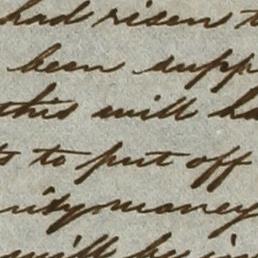 had risen
been supp
this will ha
to put off
money
will be in